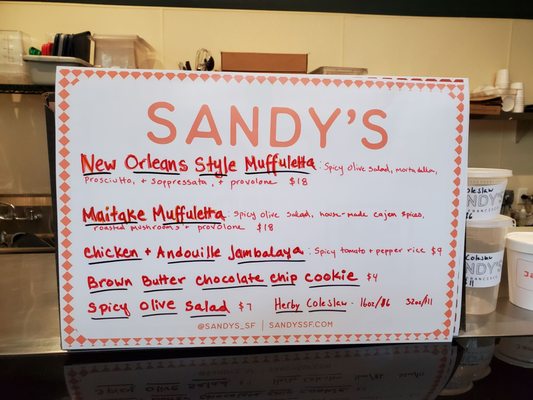 SANDY'S
New Orleans Style Muffuletta: Spicy olive salad, mortadella,
prosciutto, + soppressata, + provolone $18
Maitake Muffuletta: spicy olive salad, house-made cajun spices,
roasted mushrooms + provolone $18
Chicken + Andouille Jambalaya: Spicy tomato + pepper rice $9
Brown Butter Chocolate Chip Cookie $4
Spicy Olive Salad $7 Herby Coleslaw - 16oz/$6 32oz/$11
@SANDYS_SF | SANDYSSF.COM
Coleslaw
SANDY